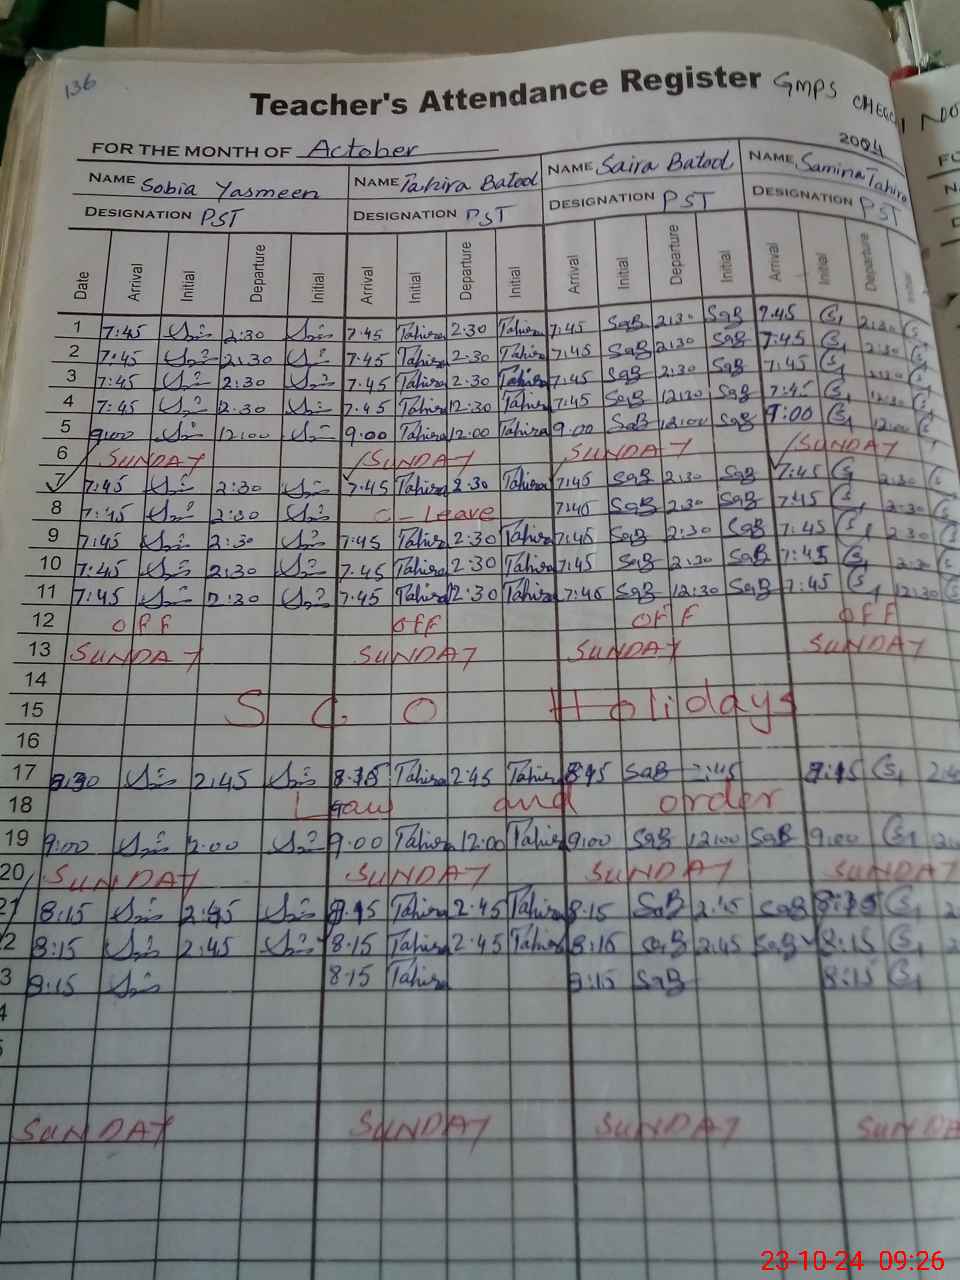 136
Teacher's Attendance Register GMPS
2004
FOR THE MONTH OF Actober
NAME Sobia Yasmeen NAME Tahira Batool NAME Saira Batool NAME Samina Tahira
DESIGNATION PST DESIGNATION PST DESIGNATION PST DESIGNATION PST
Date Arrival Initial Departure Initial Arrival Initial Departure Initial Arrival Initial Departure Initial Arrival Initial Departure
1 7:45 2:30 7:45 Tahira 2:30 Tahira 7:45 SaB 2:30 SaB 7:45 2:30
2 7:45 2:30 7:45 Tahira 2:30 Tahira 7:45 SaB 2:30 SaB 7:45 2:30
3 7:45 2:30 7:45 Tahira 2:30 Tahira 7:45 SaB 2:30 SaB 7:45
4 7:45 12:30 7:45 Tahira 12:30 Tahira 7:45 SaB 12:30 SaB 7:45 12:30
5 9:00 12:00 9:00 Tahira 12:00 Tahira 9:00 SaB 12:00 SaB 9:00 12:00
6 SUNDAY SUNDAY SUNDAY SUNDAY
7 7:45 2:30 7:45 Tahira 2:30 Tahira 7:45 SaB 2:30 SaB 7:45 2:30
8 7:45 2:30 C-Leave 7:45 SaB 2:30 SaB 7:45 2:30
9 7:45 2:30 7:45 Tahira 2:30 Tahira 7:45 SaB 2:30 SaB 7:45 2:30
10 7:45 2:30 7:45 Tahira 2:30 Tahira 7:45 SaB 2:30 SaB 7:45 2:30
11 7:45 7:45 Tahira 12:30 Tahira 7:45 SaB 12:30 SaB 7:45 12:30
12 OFF OFF OFF OFF
13 SUNDAY SUNDAY SUNDAY SUNDAY
14
15 S C O Holidays
16
17 2:45 8:15 Tahira 2:45 Tahira 8:15 SaB 2:45
18 Law and order
19 9:00 9:00 Tahira 12:00 Tahira 9:00 SaB 12:00 SaB 9:00
20 SUNDAY SUNDAY SUNDAY SUNDAY
21 8:15 2:45 8:15 Tahira 2:45 Tahira 8:15 SaB 2:45 SaB 8:15
2 8:15 2:45 8:15 Tahira 2:45 Tahira 8:15 SaB 2:45 SaB 8:15
3 8:15 8:15 Tahira 8:15 SaB 8:15
SUNDAY SUNDAY SUNDAY SUNDA
23-10-24 09:26